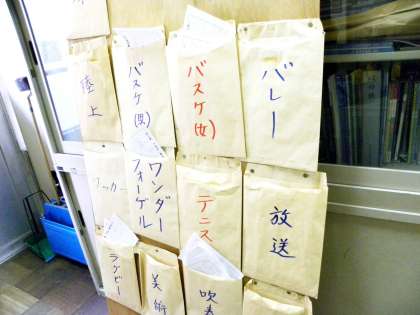 陸上
バスケ(男)
バスケ(女)
バレー
ッカー
ワンダーフォーゲル
テニス
放送
ラグビー
美術
吹奏